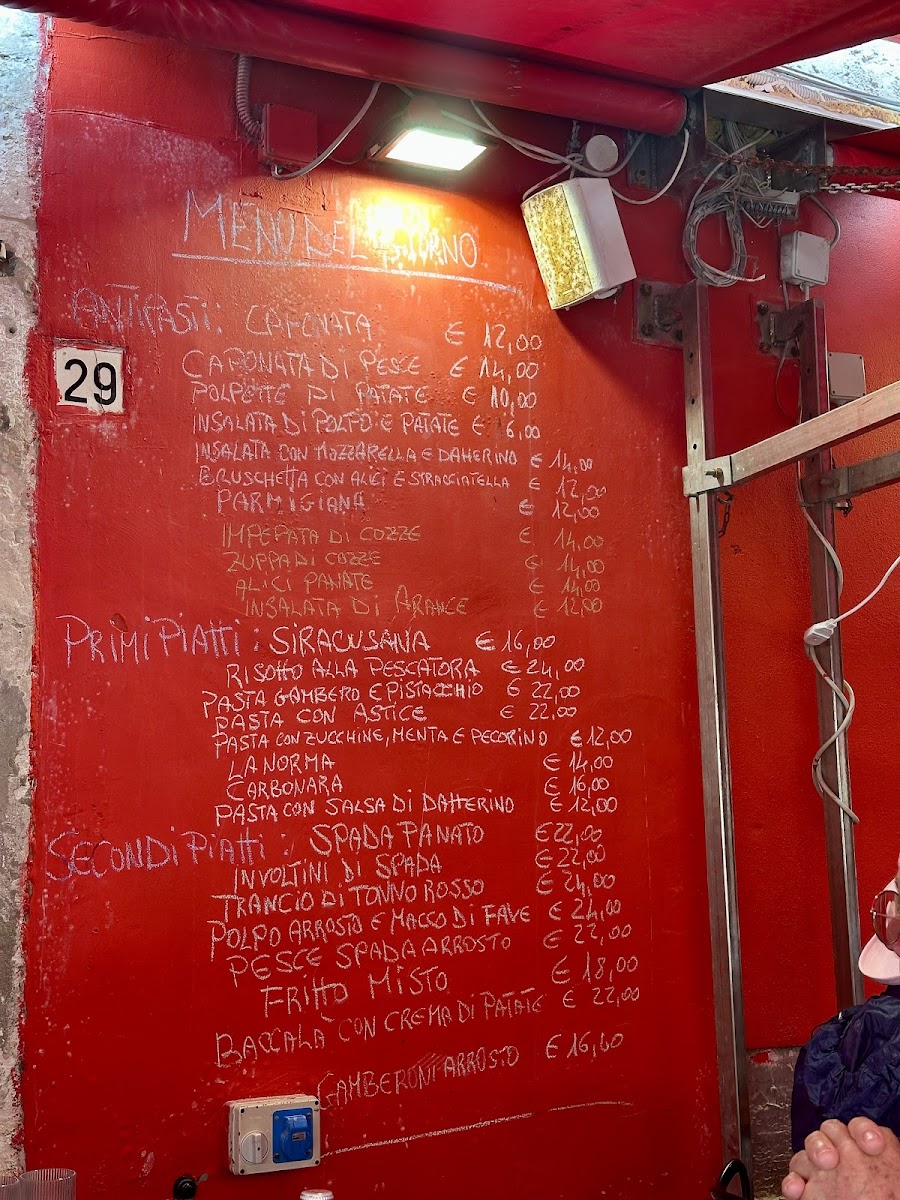 MENU DEL GIORNO
ANTIPASTI: CAPONATA € 12,00
29
CAPONATA DI PESCE € 14,00
POLPETTE DI PATATE € 10,00
INSALATA DI POLPO E PATATE € 16,00
INSALATA CON MOZZARELLA E DATTERINO € 14,00
BRUSCHETTA CON ALICI E STRACCIATELLA € 12,00
PARMIGIANA € 12,00
IMPEPATA DI COZZE € 14,00
ZUPPA DI COZZE € 14,00
ALICI PANATE € 14,00
INSALATA DI ARANCE € 12,00
PRIMI PIATTI: SIRACUSANA € 16,00
RISOTTO ALLA PESCATORA € 24,00
PASTA GAMBERO E PISTACCHIO € 22,00
PASTA CON ASTICE € 22,00
PASTA CON ZUCCHINE, MENTA E PECORINO € 12,00
LA NORMA € 14,00
CARBONARA € 16,00
PASTA CON SALSA DI DATTERINO € 12,00
SECONDI PIATTI: SPADA PANATO € 22,00
INVOLTINI DI SPADA € 22,00
TRANCIO DI TONNO ROSSO € 24,00
POLPO ARROSTO E MACCO DI FAVE € 24,00
PESCE SPADA ARROSTO € 22,00
FRITTO MISTO € 18,00
BACCALA CON CREMA DI PATATE € 22,00
GAMBERONI ARROSTO € 16,00